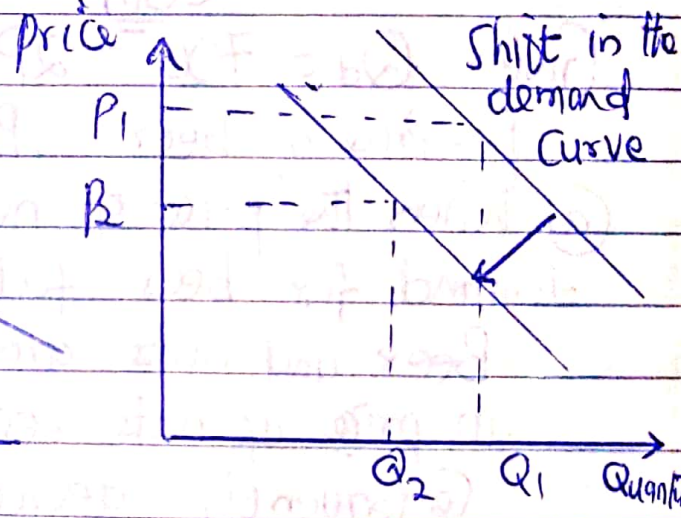 Price
Shift in the
demand
Curve
P1
P2
Q2
Q1
Quanti